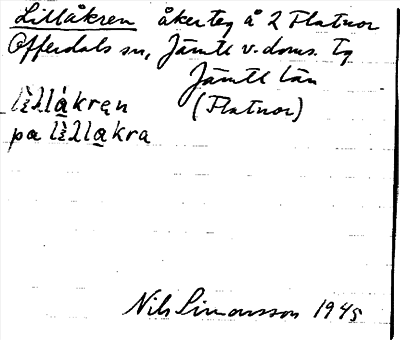 Lillåkren åkerteg å 2 Flatnor
Offerdals sn, Jämtl v. doms. tg
Jämtl län
lìllákrẹn (Flatnor)
pa lìllakra
Nils Simonsson 1945